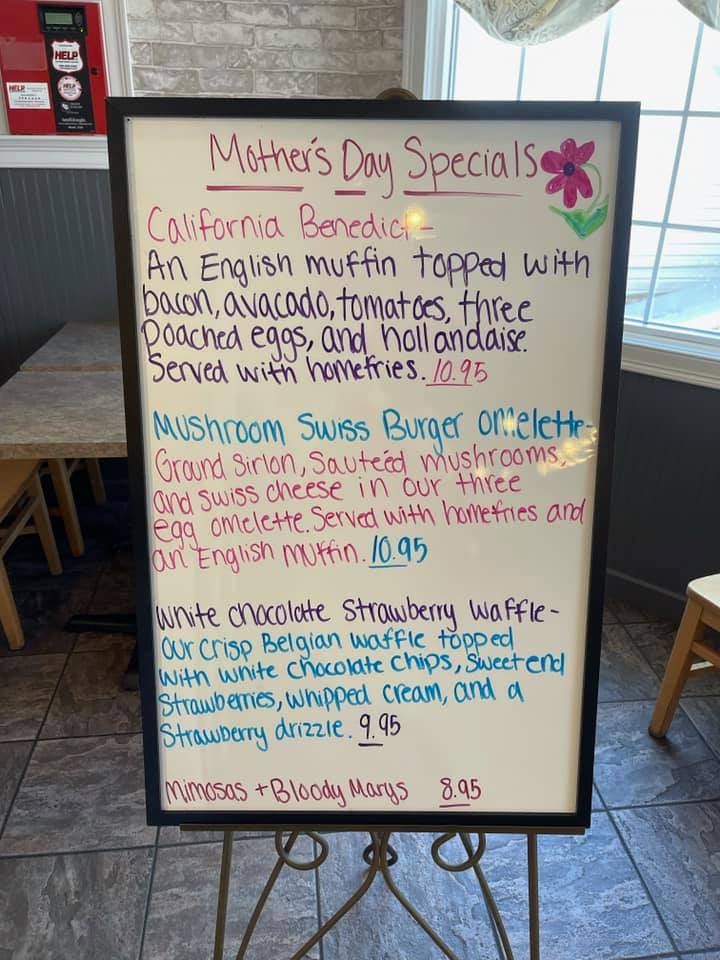 HELP
HELP
HELP
Mother's Day Specials
California Benedict-
An English muffin topped with
bacon, avacado, tomatoes, three
poached eggs, and hollandaise.
Served with homefries. 10.95
Mushroom Swiss Burger omelette-
Ground Sirlon, Sauteéd mushrooms,
and swiss cheese in our three
egg omelette. Served with homefries and
an English muffin. 10.95
White chocolate Strawberry Waffle-
our crisp Belgian waffle topped
with white chocolate chips, sweetend
Strawberries, whipped cream, and a
Strawberry drizzle. 9.95
Mimosas + Bloody Marys 8.95